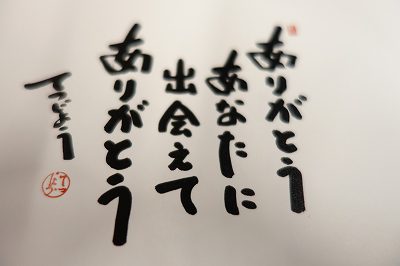 ありがとう
あなたに
出会えて
ありがとう
てつじょう